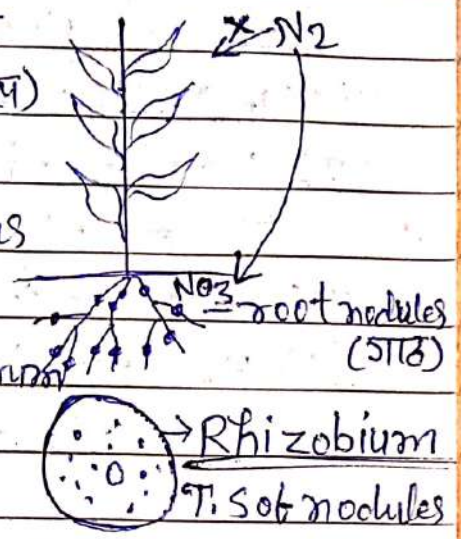 x N2
प)
s
NO3
root nodules
(गाठ)
um
→ Rhizobium
T.S of nodules